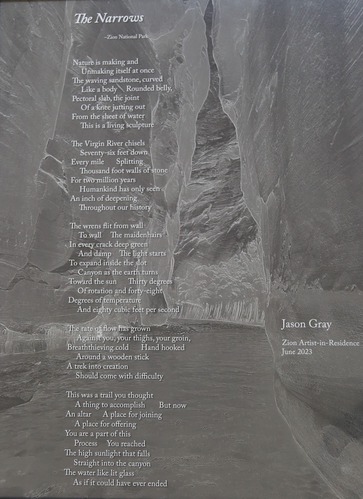 The Narrows
–Zion National Park
Nature is making and
Unmaking itself at once
The waving sandstone, curved
Like a body Rounded belly,
Pectoral slab, the joint
Of a knee jutting out
From the sheet of water
This is a living sculpture
The Virgin River chisels
Seventy-six feet down
Every mile Splitting
Thousand foot walls of stone
For two million years
Humankind has only seen
An inch of deepening
Throughout our history
The wrens flit from wall
To wall The maidenhairs
In every crack deep green
And damp The light starts
To expand inside the slot
Canyon as the earth turns
Toward the sun Thirty degrees
Of rotation and forty-eight
Degrees of temperature
And eighty cubic feet per second
The rate of flow has grown
Against you, your thighs, your groin,
Breaththieving cold Hand hooked
Around a wooden stick
A trek into creation
Should come with difficulty
This was a trail you thought
A thing to accomplish But now
An altar A place for joining
A place for offering
You are a part of this
Process You reached
The high sunlight that falls
Straight into the canyon
The water like lit glass
As if it could have ever ended
Jason Gray
Zion Artist-in-Residence
June 2023